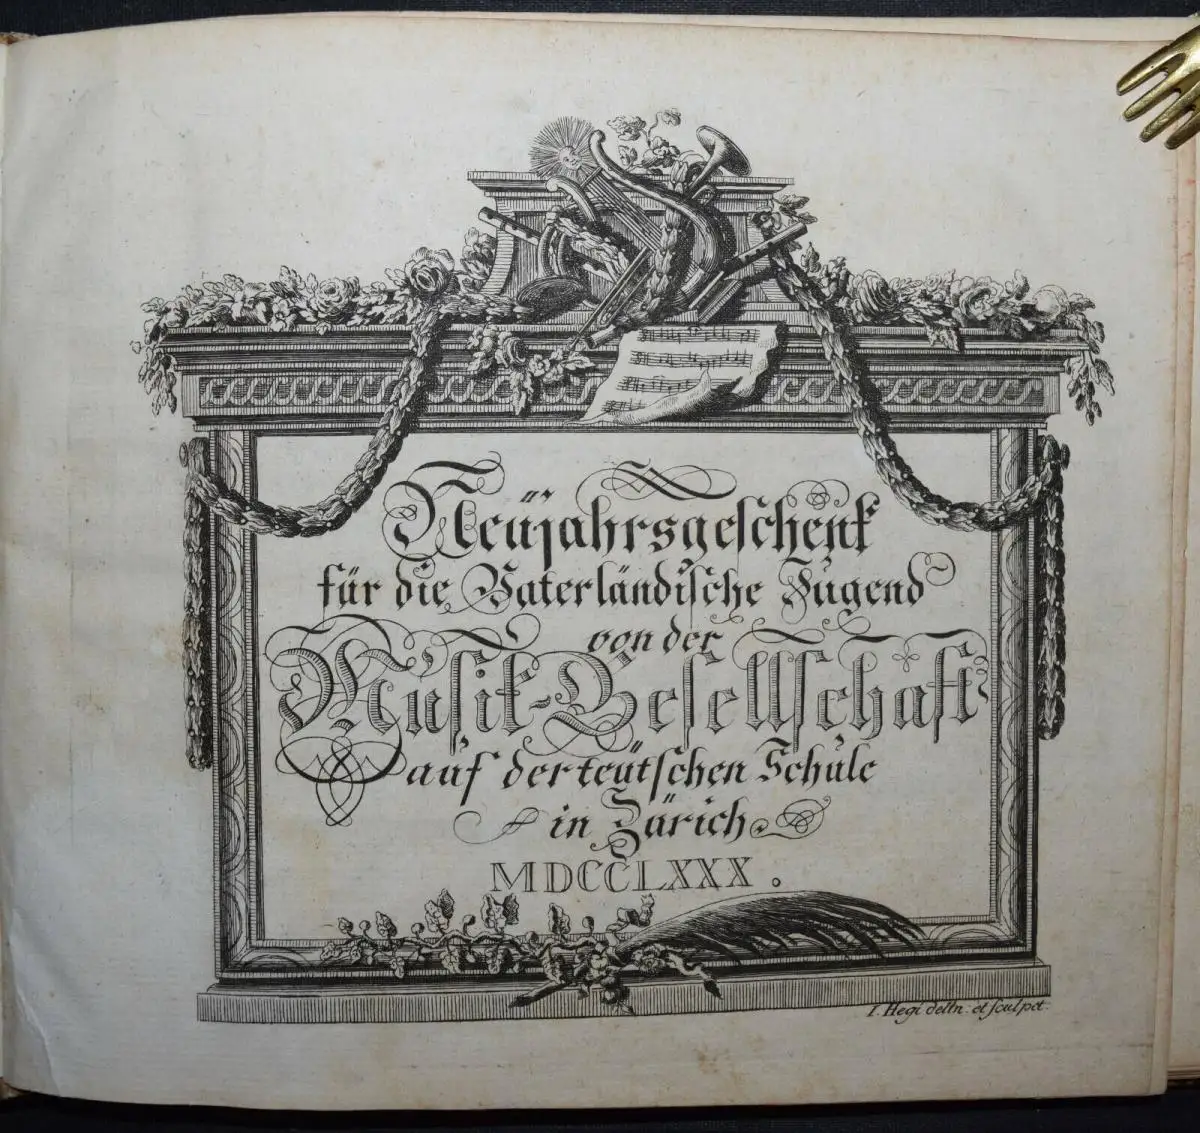 Neüjahrsgeschenk
für die Vaterländische Jugend
von der
Musik-Gesellschaft
auf der teütschen Schule
in Zürich
MDCCLXXX.
I. Hegi delin: et sculpct.